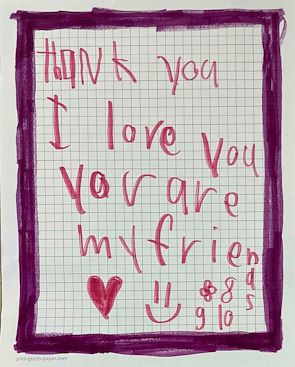 thank you
I love you
your are
my friends
8
9 10
print-graph-paper.com